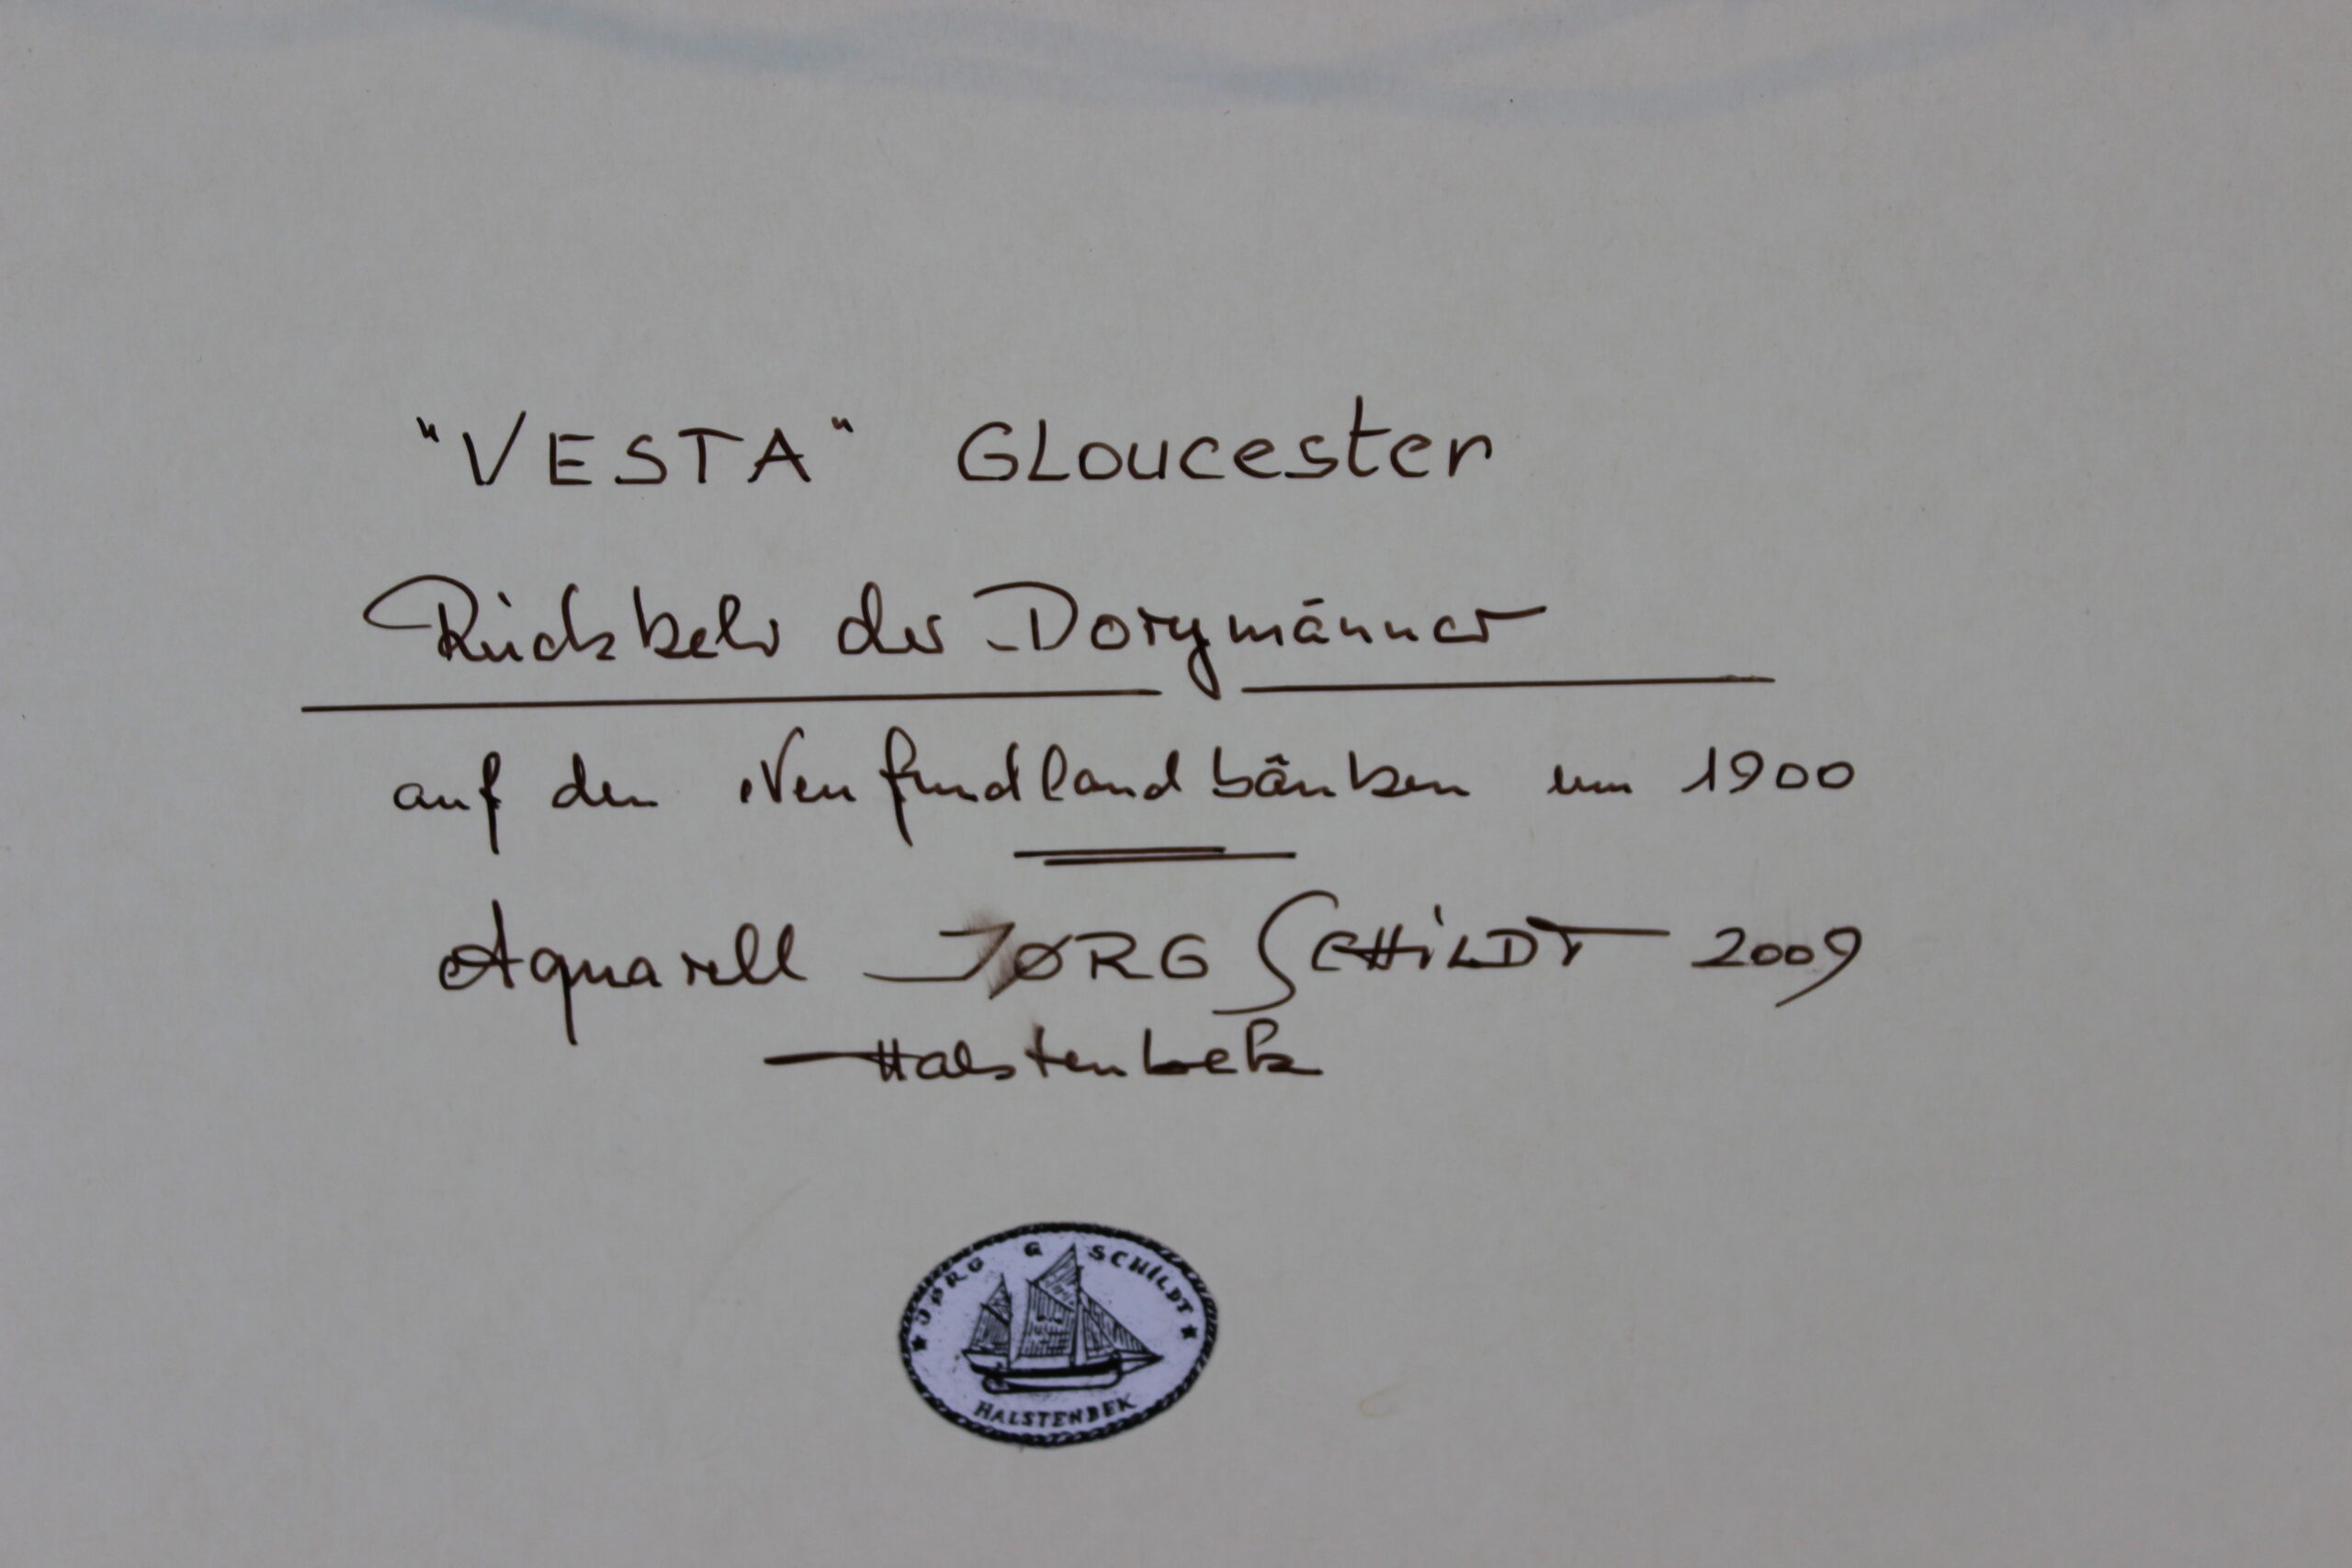 "VESTA" GLoucester
Rückkehr der Dorymänner
auf den Neufundlandbänken um 1900
Aquarell JØRG SCHiLDT 2009
Halstenbek
★ JØRG G SCHILDT ★
HALSTENBEK